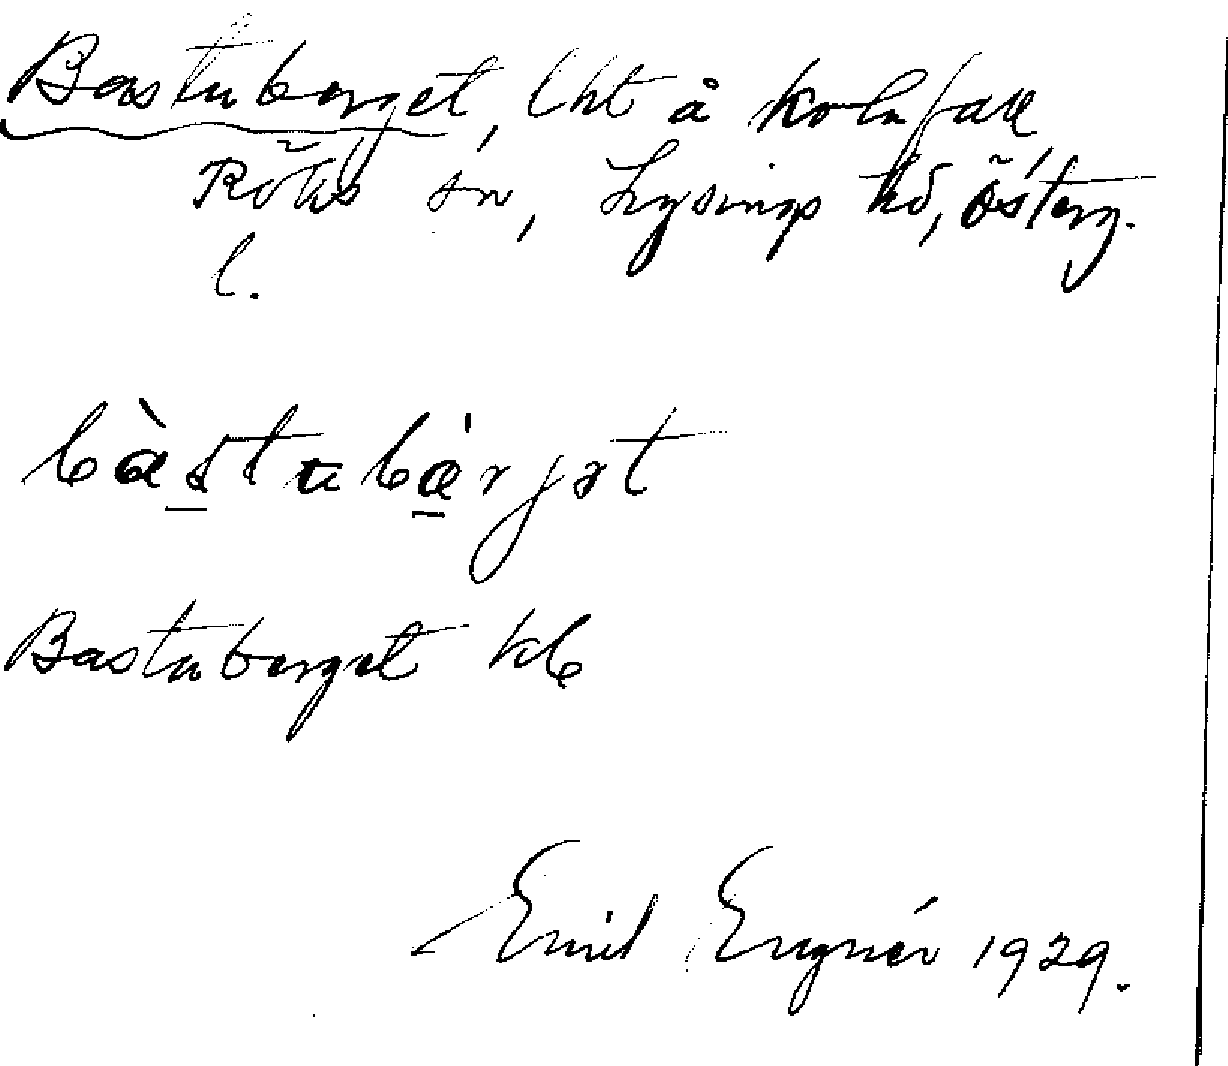 Bastuberget, lht å
Röks sn, Lysings hd, Österg.
l.
bàstubärjət
Bastuberget kb
Emil Engnér 1929.